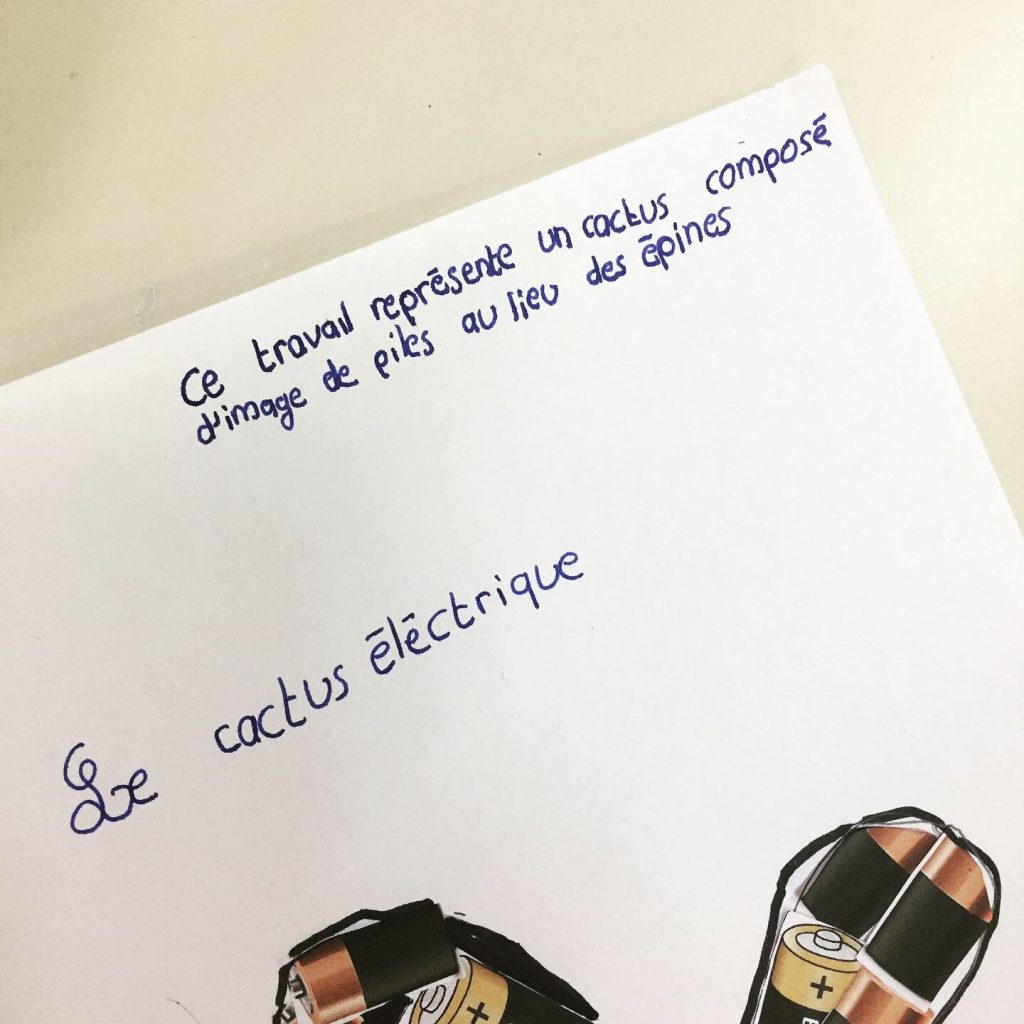 Ce travail représente un cactus composé
d'image de piles au lieu des épines
Le cactus éléctrique
+
+